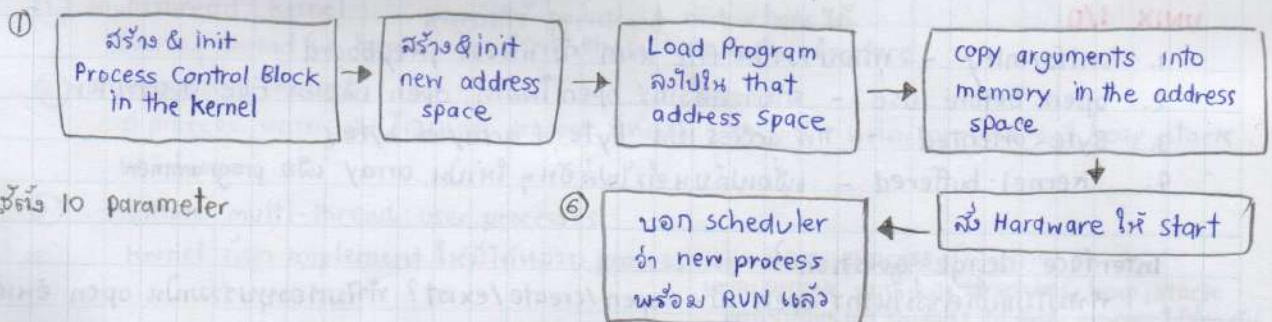 ①
สร้าง & init
Process Control Block
in the kernel
สร้าง & init
new address
space
Load Program
ลงไปใน that
address space
copy arguments into
memory in the address
space
สั่ง Hardware ให้ start
⑥
บอก scheduler
ว่า new process
พร้อม RUN แล้ว
10 parameter